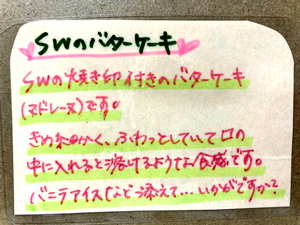 SWのバターケーキ
SWの焼き印付きのバターケーキ
(マドレーヌ)です。
きめ細かく、ふわっとしていて口の
中に入れると溶けるような食感です。
バニラアイスなど添えて…いかがですか?